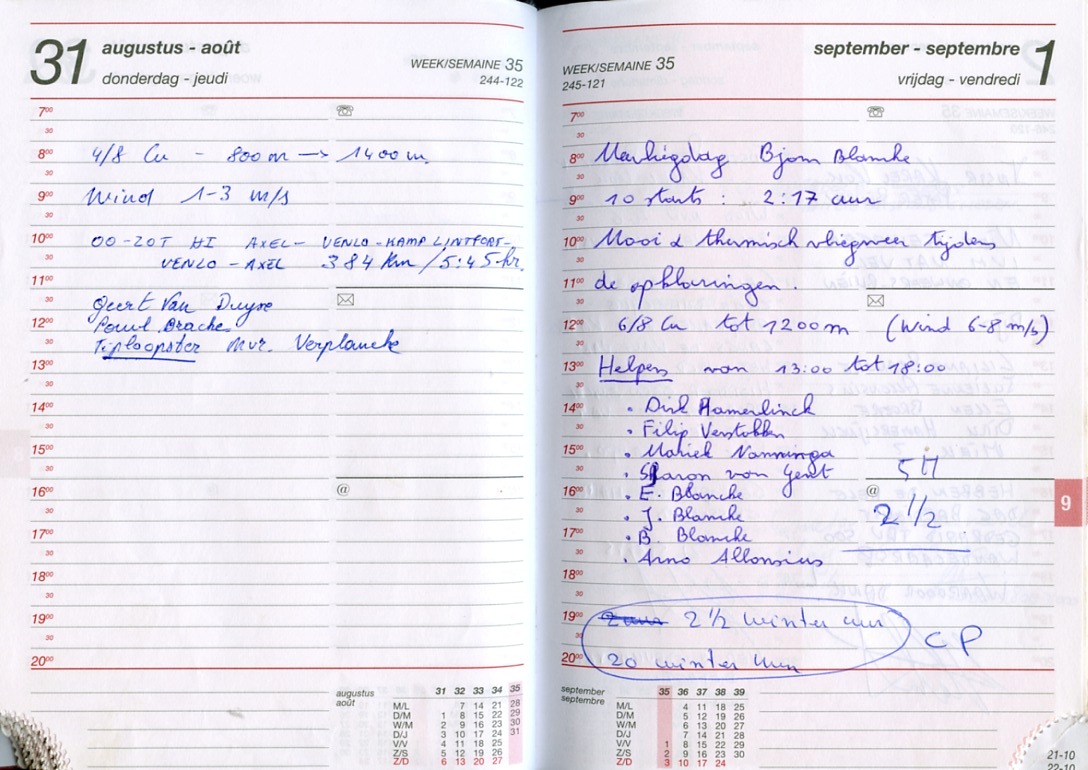 31 augustus - août
donderdag - jeudi
WEEK/SEMAINE 35
244-122
7⁰⁰
30
8⁰⁰ 4/8 Cu - 800m → 1400m
30
9⁰⁰ Wind 1-3 m/s
30
10⁰⁰ OO-ZOT HI AXEL - VENLO - KAMP LINTFORT -
30 VENLO - AXEL 384 km / 5:45 hr.
11⁰⁰
30 Geert Van Duyse
12⁰⁰ Poul Brache
30 Tiploopster Mvr. Verplancke
13⁰⁰
30
14⁰⁰
30
15⁰⁰
30
16⁰⁰ @
30
17⁰⁰
30
18⁰⁰
30
19⁰⁰
30
20⁰⁰
augustus
août
31 32 33 34 35
M/L 7 14 21 28
D/M 1 8 15 22 29
W/M 2 9 16 23 30
D/J 3 10 17 24 31
V/V 4 11 18 25
Z/S 5 12 19 26
Z/D 6 13 20 27
september - septembre 1
vrijdag - vendredi
WEEK/SEMAINE 35
245-121
7⁰⁰
30
8⁰⁰ Bjorn Blancke
30
9⁰⁰ 10 starts : 2:17 uur
30
10⁰⁰ Mooi & thermisch vliegweer tijdens
30
11⁰⁰ de opklaringen.
30
12⁰⁰ 6/8 Cu tot 1200m (Wind 6-8 m/s)
30
13⁰⁰ Helpers van 13:00 tot 18:00
30
14⁰⁰ • Dirk Hamerlinck
30 • Filip Verstokken
15⁰⁰ • Mariek Nanninga
30 • Sharon van Gent 5 H
16⁰⁰ • E. Blancke @
30 • J. Blancke 2 1/2
17⁰⁰ • B. Blancke
30 • Arno Allonsius
18⁰⁰
30
19⁰⁰ 2 1/2 winter uur
30 CP
20⁰⁰ 20 winter
september
septembre
35 36 37 38 39
M/L 4 11 18 25
D/M 5 12 19 26
W/M 6 13 20 27
D/J 7 14 21 28
V/V 1 8 15 22 29
Z/S 2 9 16 23 30
Z/D 3 10 17 24
9
21-10
22-10